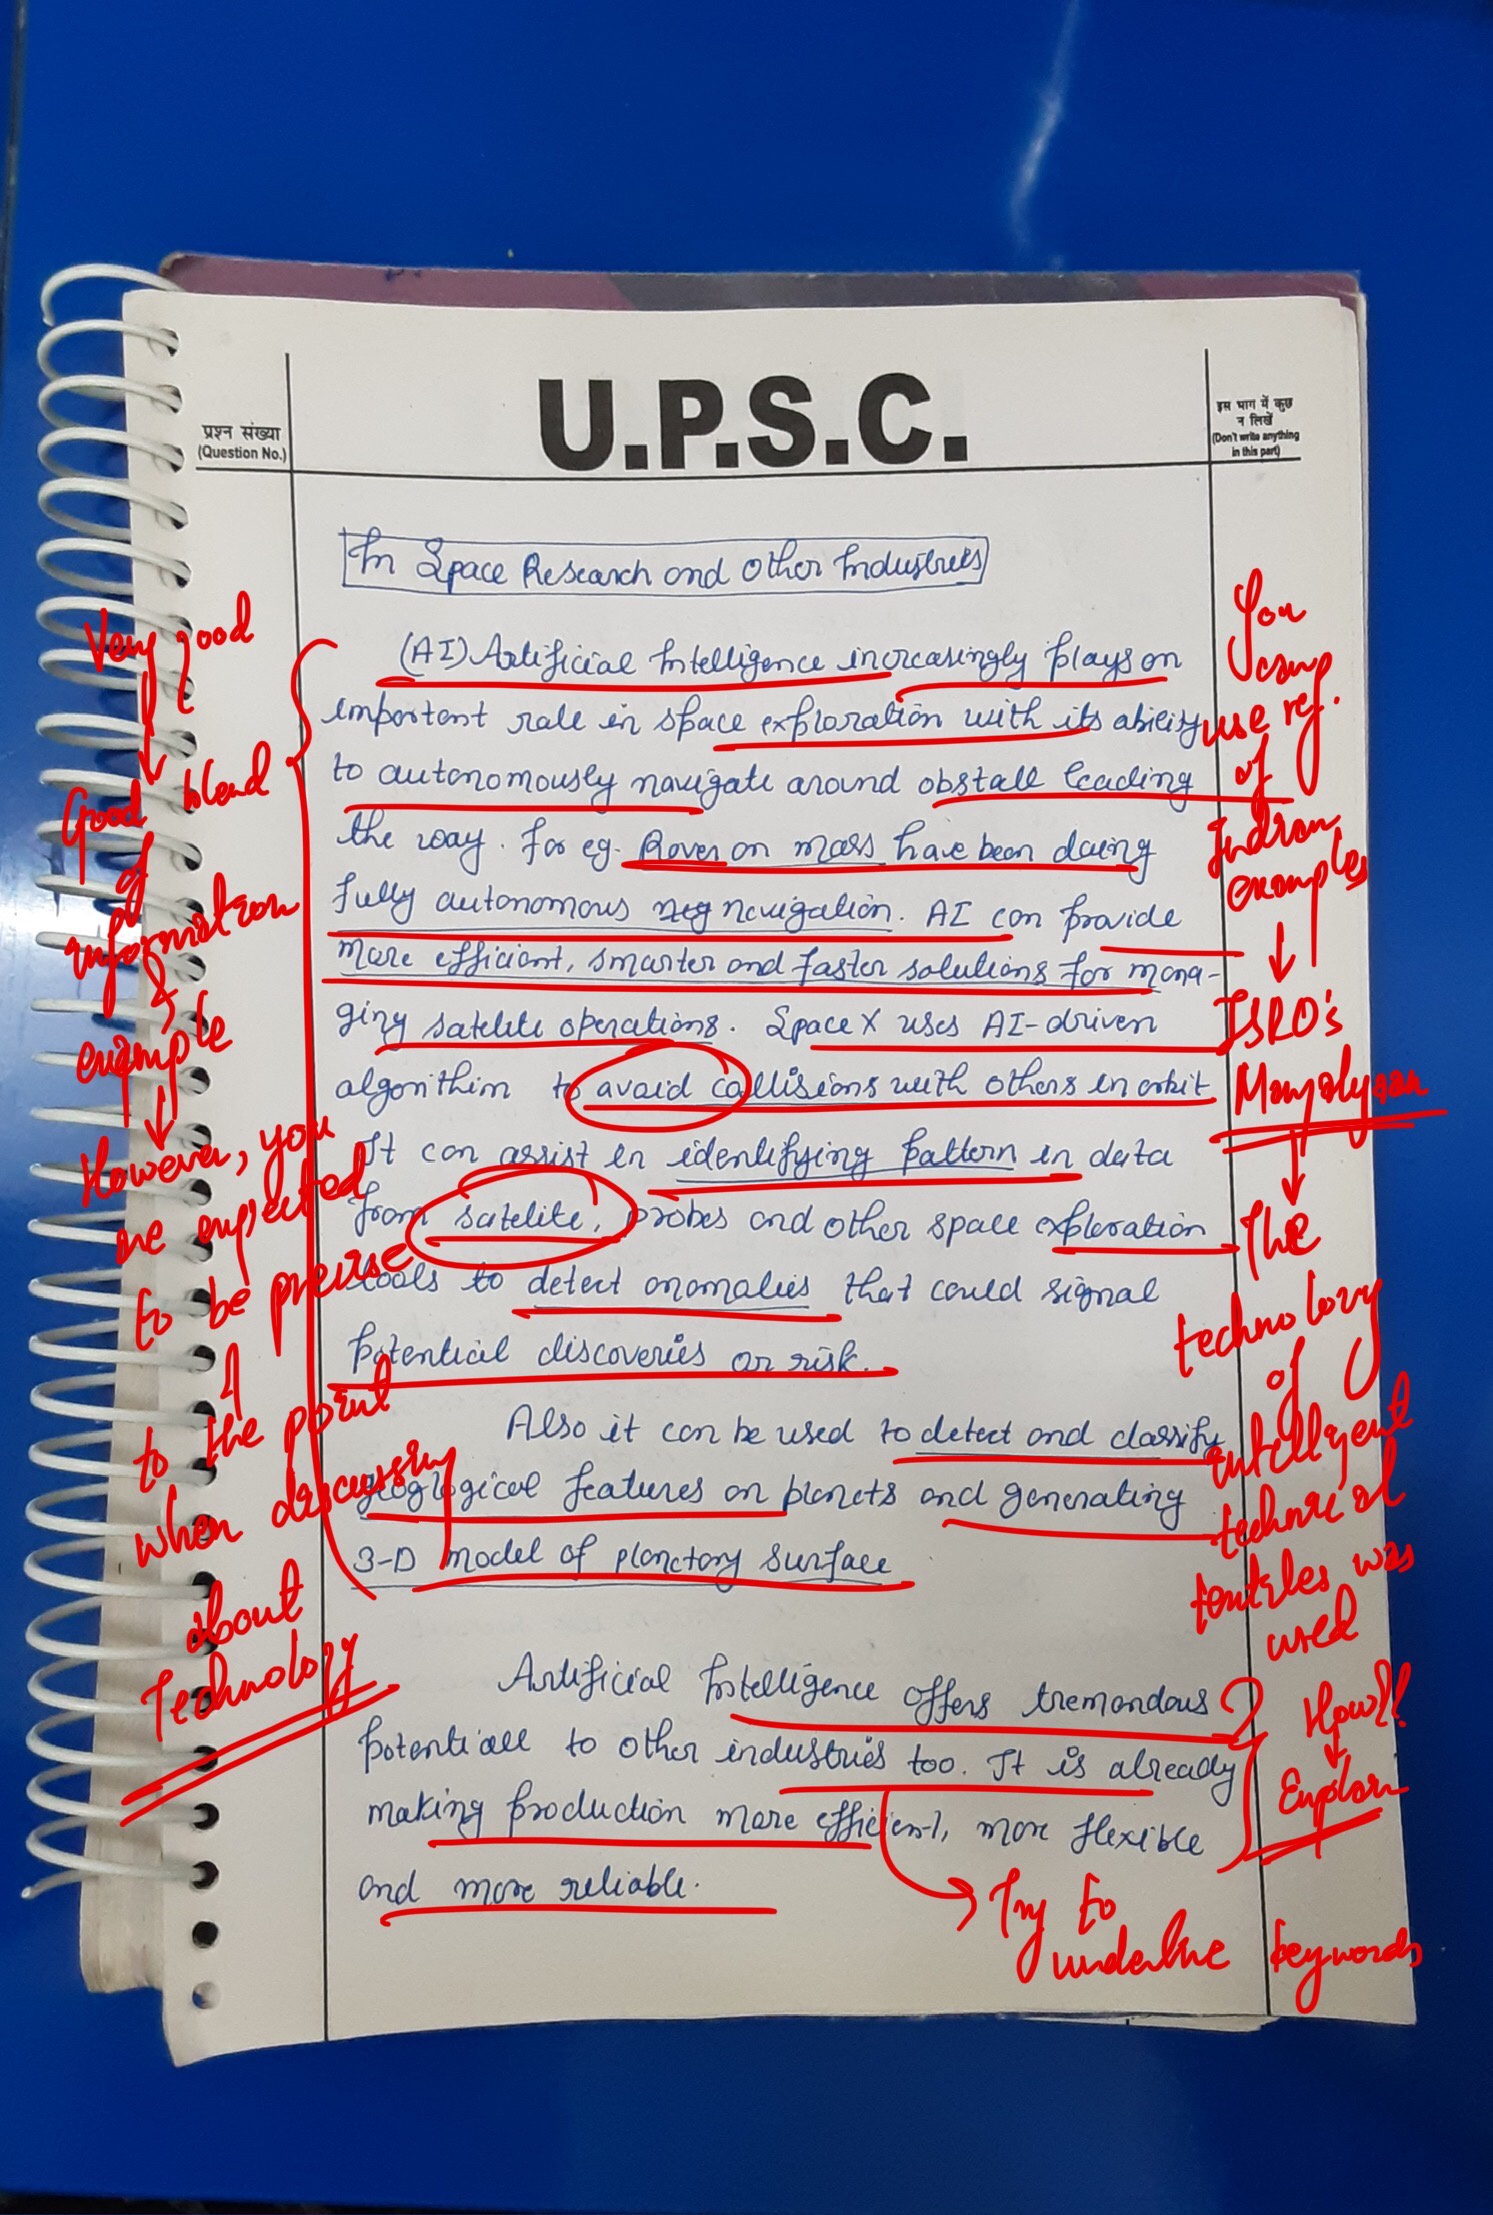 U.P.S.C.
प्रश्न संख्या
(Question No.)
इस भाग में कुछ
न लिखें
(Don't write anything
in this part)
In Space Research and other Industries
(AI) Artificial Intelligence increasingly plays an
important role in space exploration with its ability
to autonomously navigate around obstall leading
the way. For eg. Rover on mars have been doing
fully autonomous navigation. AI can provide
more efficient, smarter and faster solutions for mana-
ging satelite operations. Space X uses AI-driven
algorithim to avoid collisions with others in orbit
It can assist in identifying pattern in data
from satelite, probes and other space exploration
tools to detect anomalies that could signal
potential discoveries or risk.
Also it can be used to detect and classify
geological features on planets and generating
3-D model of planetory surface
Artificial Intelligence offers tremondous
potentiall to other industries too. It is already
making production more efficient, more flexible
and more reliable.
Very good
Good blend
of
information
&
example
However, you
are expected
to be precise
&
to the point
when discussing
about
Technology
You
can
use ref.
of
Indian
examples
ISRO's
Mangalyaan
The
technology
of
intelligent
technical
was
used
? How??
Explain
Try to
underline keywords